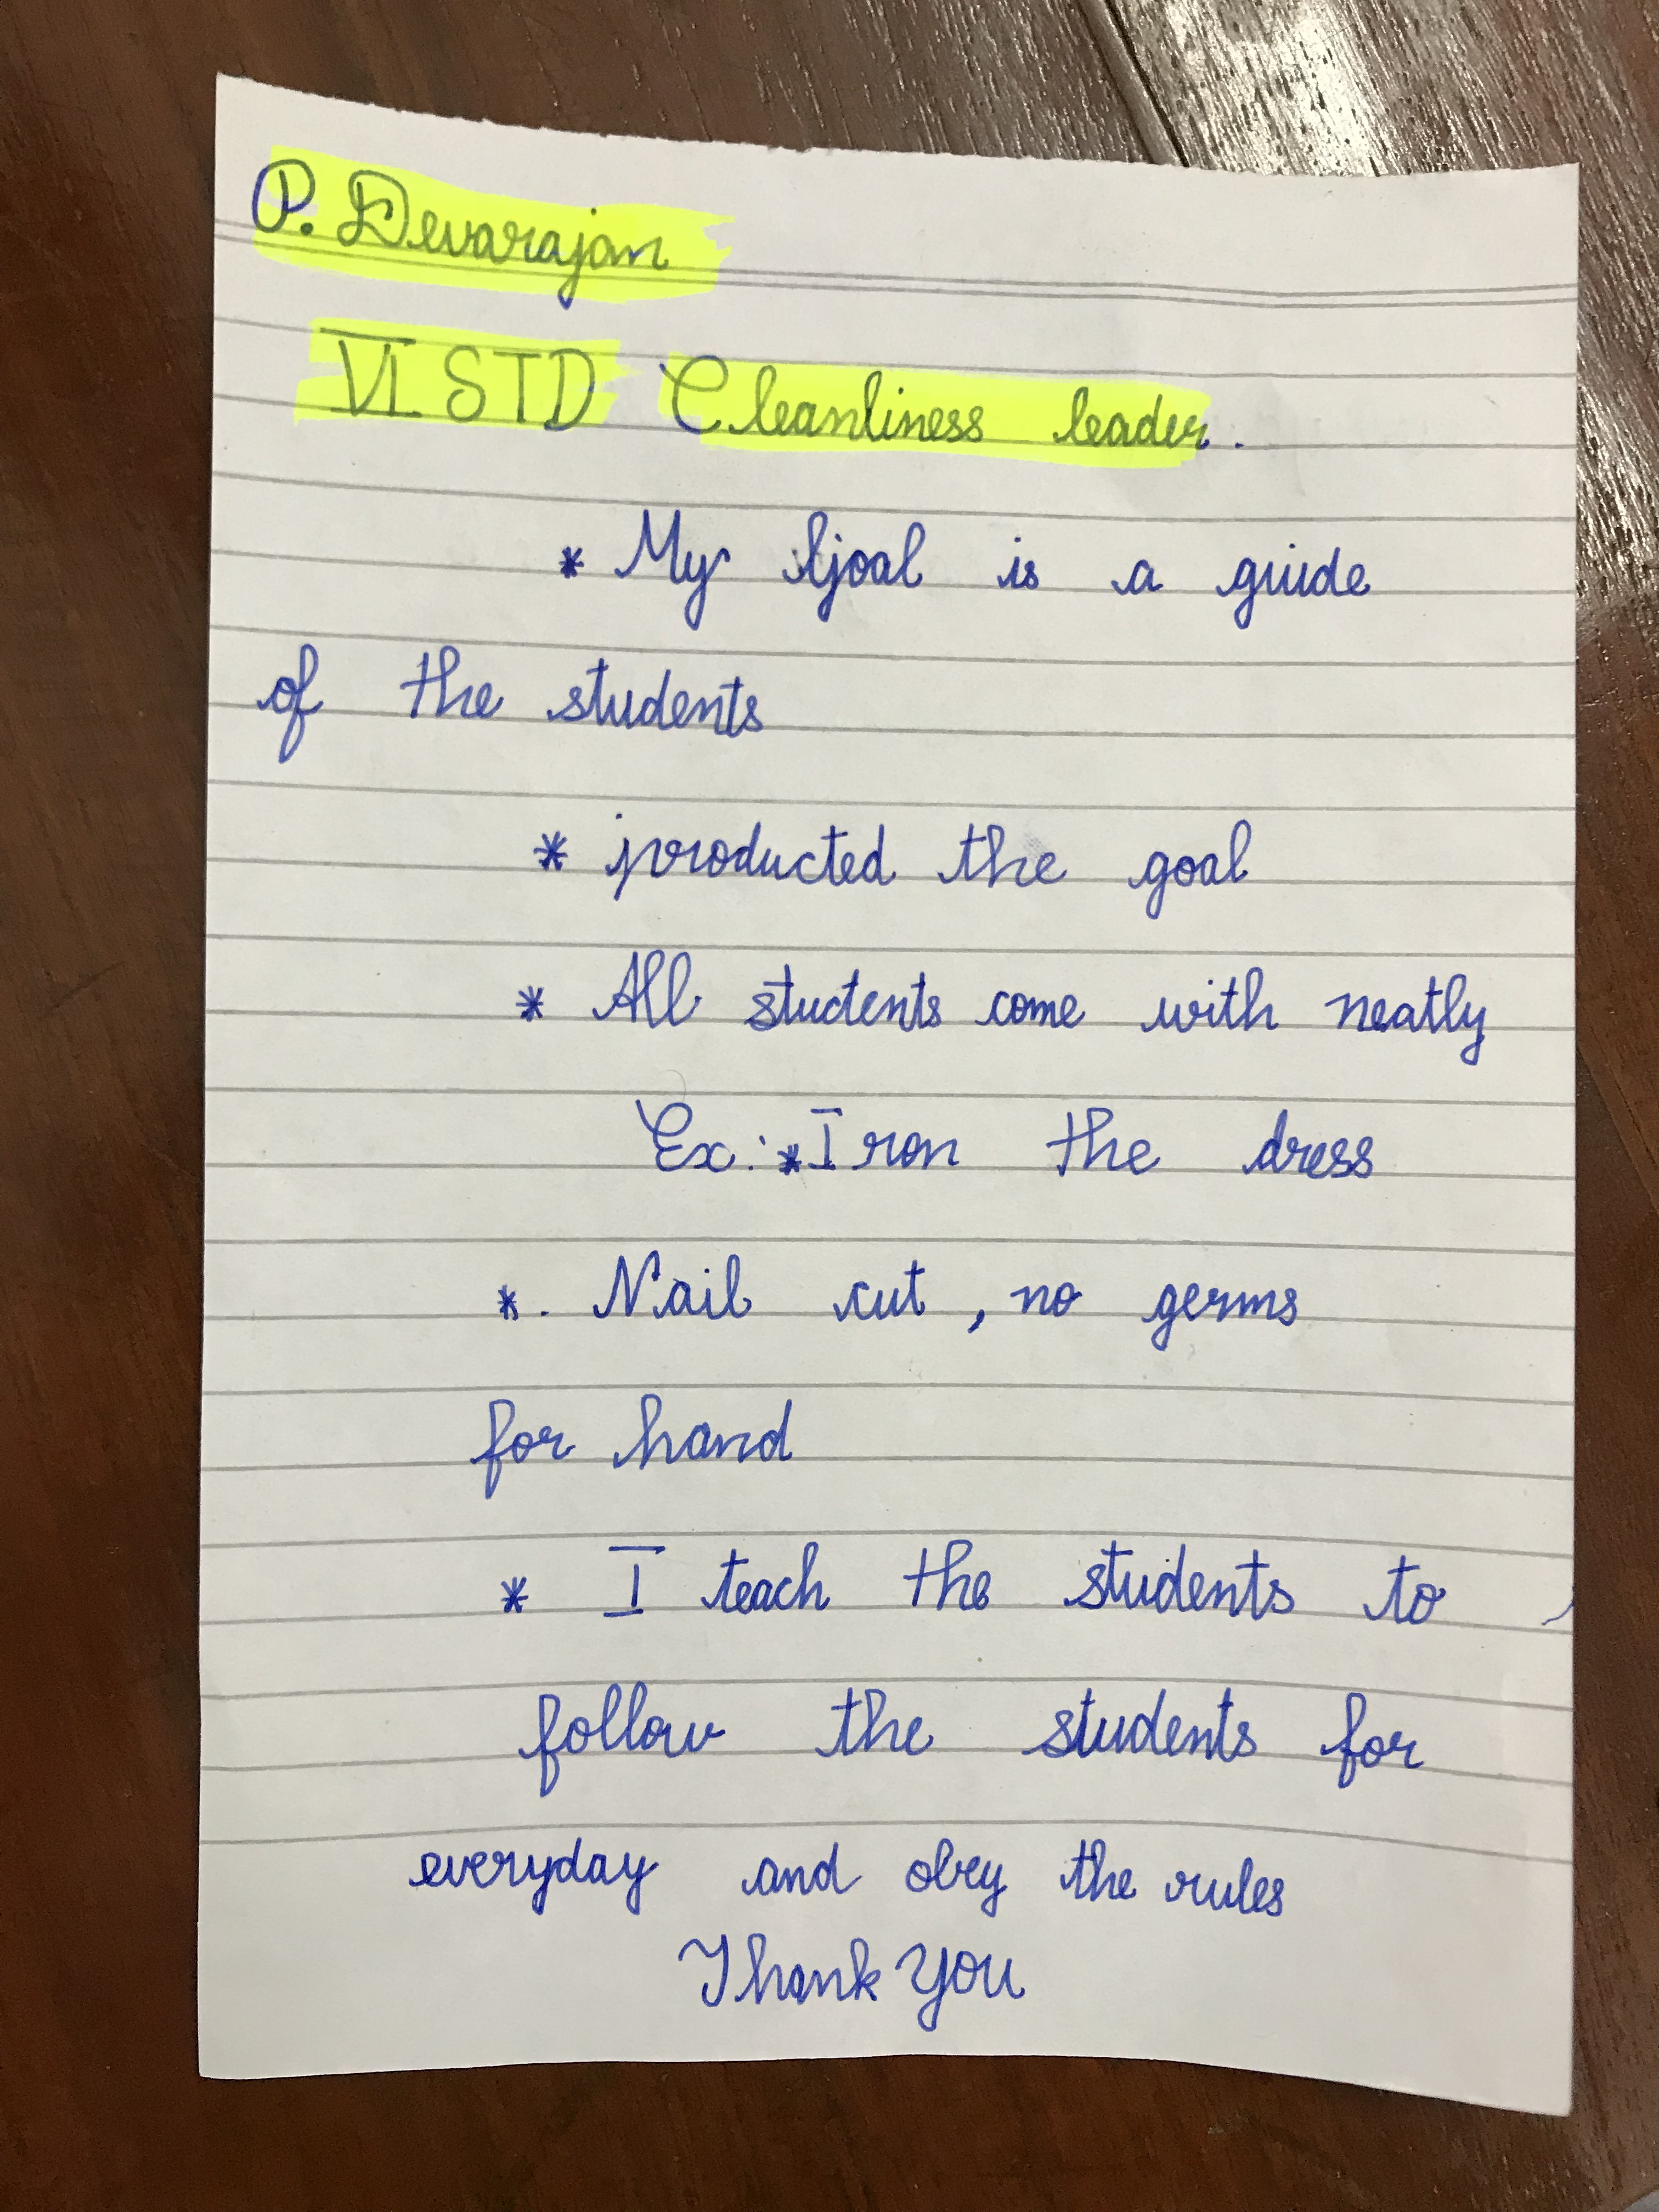 P. Devarajan
VI STD Cleanliness leader.
* My Goal is a guide
of the students
* producted the goal
* All students come with neatly
Ex: * Iron the dress
*. Nail cut, no germs
for hand
* I teach the students to
follow the students for
everyday and obey the rules
Thank You